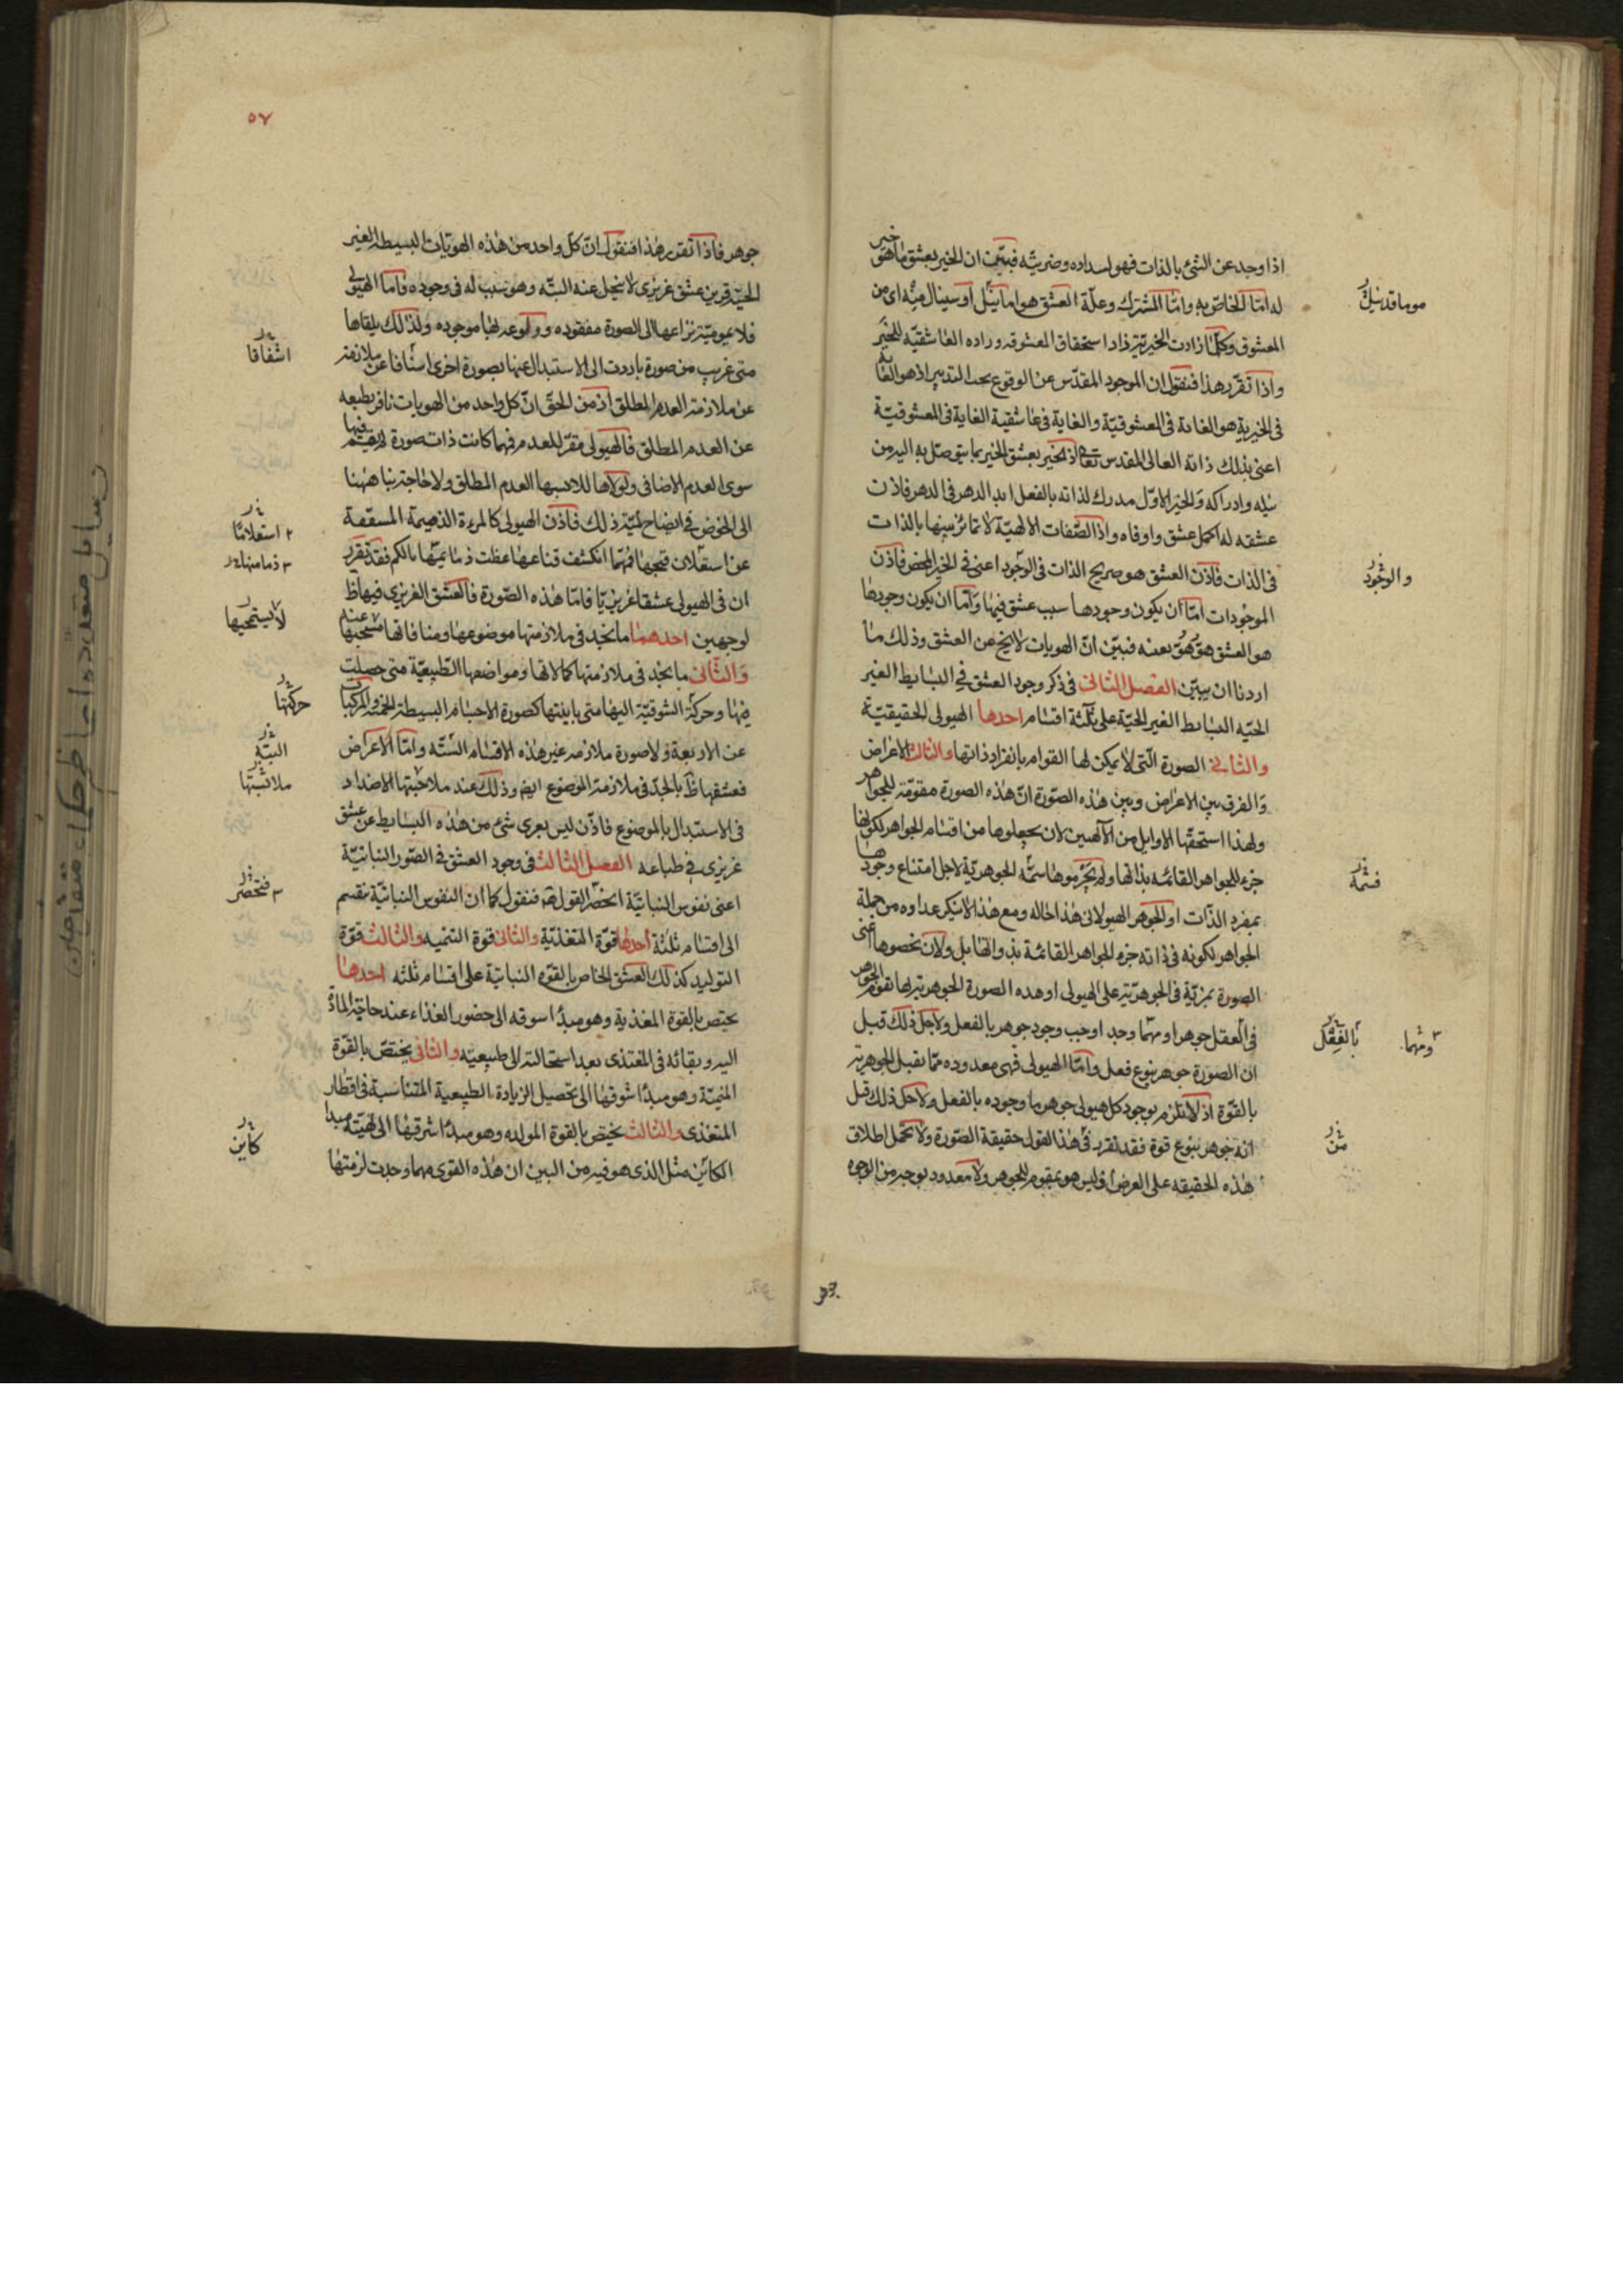 اذا وجد عن الشئ بالذات فهو لسداده وضريته فبيّن ان الخير يعشق ما هو خير
له امّا الخاصّ به وامّا المشترك وعلّة العشق هو اما نيل او سينال منه اى من
المعشوق وكلّما زادت الخيريّة زاد استحقاق المعشوقه وزاده العاشقيّه للخير
واذا تقرّر هذا فنقول ان الموجود المقدّس عن الوقوع تحت التدبير اذ هو الغاية
فى الخيرية هو الغاية فى المعشوقيّة والغاية فى عاشقية الغاية فى المعشوقيّة
اعنى بذلك ذاته العالى المقدس تعا اذ الخير يعشق الخير بما يتوصّل به اليه من
نيله وادراكه والخير الاوّل مدرك لذاته بالفعل ابد الدهر فى الدهر فاذن
عشقه له اكمل عشق واوفاه واذ الصّفات الالهيّة لا تمائز بينها بالذات
فى الذات فاذن العشق هو صريح الذات فى الوجود اعنى فى الخير المحض فاذن
الموجودات امّا ان يكون وجودها سبب عشق فيها وامّا ان يكون وجودها
هو العشق هو هو بعينه فبيّن انّ الهويات لا يخ عن العشق وذلك ما
اردنا ان يبيّن الفصل الثانى فى ذكر وجود العشق فى البسايط الغير
الحيّه البسايط الغير الحيّة على ثلثة اقسام احدها الهيولى الحقيقيّة
والثانى الصورة الّتى لا يمكن لها القوام بانفراد ذاتها والثالث الاعراض
والفرق بين الاعراض وبين هذه الصّورة انّ هذه الصورة مقوّمة للجواهر
ولهذا استحقّها الاوايل من الآلهيين لان يجعلوها من اقسام الجواهر لكونها
جزء للجواهر القائمه بذاتها ولم يحرموها سمّه الجوهريّة لاجل امتناع وجودها
بمفرد الذّات او الجوهر الهيولانى هذا حاله ومع هذا لا ينكر عداوه من جملة
الجواهر لكونه فى ذاته جزء للجواهر القائمة بذواتها بل ولان نخصوها اعنى
الصورة بمزيّة فى الجوهريّة على الهيولى او هذه الصورة الجوهرية بها تقوم الجوهر
فى العقل جوهرا ومهما وجد اوجب وجود جوهر بالفعل ولاجل ذلك قيل
ان الصورة جوهر بنوع فعل وامّا الهيولى فهى معدوده ممّا يقبل الجوهرية
بالقوّة اذ لا يلزم بوجود كل هيولى جوهر ما وجوده بالفعل ولاجل ذلك قيل
انه جوهر بنوع قوة فقد تقرر فى هذا القول حقيقة الصّورة ولا تحمل اطلاق
هذه الحقيقه على العرض اذ ليس هو بمقوم للجوهر ولا معدود بوجه من الوجوه
والوجود
قسمة
بالعقل
ومهما
من
٥٧
جوهر فاذا تقرر هذا فنقول انّ كلّ واحد من هذه الهويّات البسيطة الغير
الحيّة قرين عشق غريزى لا يتخلى عنه البتّه وهو سبب له فى وجوده فاما الهيولى
فلا يموميّة نزاعها الى الصورة مفقوده وولوعه لها موجوده ولذلك يلقاها
متى عريت من صورة بادرت الى الاستبدال عنها بصورة اخرى اشفاقا عن ملازمة
عن ملازمة العدم المطلق اذ من الحقّ انّ كل واحد من الهويات نافر بطبعه
عن العدم المطلق فالهيولى مقرّ للعدم فهما كانت ذات صورة لم يقم فيها
سوى العدم الاضافى ولولاها للابسها العدم المطلق ولا حاجة بنا ههنا
الى الخوض فى ايضاح لميّة ذلك فاذن الهيولى كالمرءة الذميمة المشفقة
عن استعلان قبحها فمهما انكشف قناعها غطت ذمايمها بالكم فقد تقرر
ان فى الهيولى عشقا غريزيّا فامّا هذه الصّورة فالعشق الغريزى فيها ظ
لوجهين احدهما ما نجد فى ملازمتها موضوعها ومنافاتها مسحبها عنه
والثّانى ما نجد فى ملازمتها كمالاتها ومواضعها الطّبيعيّة متى حصلت
فيها وحركة الشوقيّة اليها متى باينتها كصورة الاجسام البسيطة الخمسة والمركبات
عن الاربعة ولا صورة ملازمه غير هذه الاقسام السّتّه وامّا الاعراض
فعشقها ظ بالجدّ فى ملازمة الموضوع ايض وذلك عند ملاحيتها الاضداد
فى الاستبدال بالموضوع فاذن ليس يعرى شئ من هذه البسايط عن عشق
غريزى فى طباعه الفصل الثالث فى وجود العشق فى الصّور النباتيّة
اعنى نفوس النباتيّة انحصر القول فنقول كما ان النفوس النباتيّة تنقسم
الى اقسام ثلثة احدها قوّة المتغذيّة والثانى قوة التنميه والثالث قوّة
التوليد كذلك العشق الخاص بالقوّه النباتيّة على اقسام ثلثه احدها
يختص بالقوة المغذية وهو مبدأ شوقه الى حضور الغذاء عند حاجة المادّة
اليه وبقائه فى المغتذى بعد استحالته الى طبيعيّته والثانى يختصّ بالقوّة
المنميّة وهو مبدأ شوقها الى تحصيل الزيادة الطبيعية المتناسبة فى اقطار
المتغذى والثالث يختص بالقوة المولده وهو مبدأ شوقها الى تهيئة مبدا
الكائن مثل الذى هو فيه من البين ان هذه القوى مهما وجدت لزمتها
اشفاقا
استعلامًا
لا يستحيها
حركتها
البتّه
ملابستها
فنحصر
كاين
رسايل متعدده از حكماء متقدمين